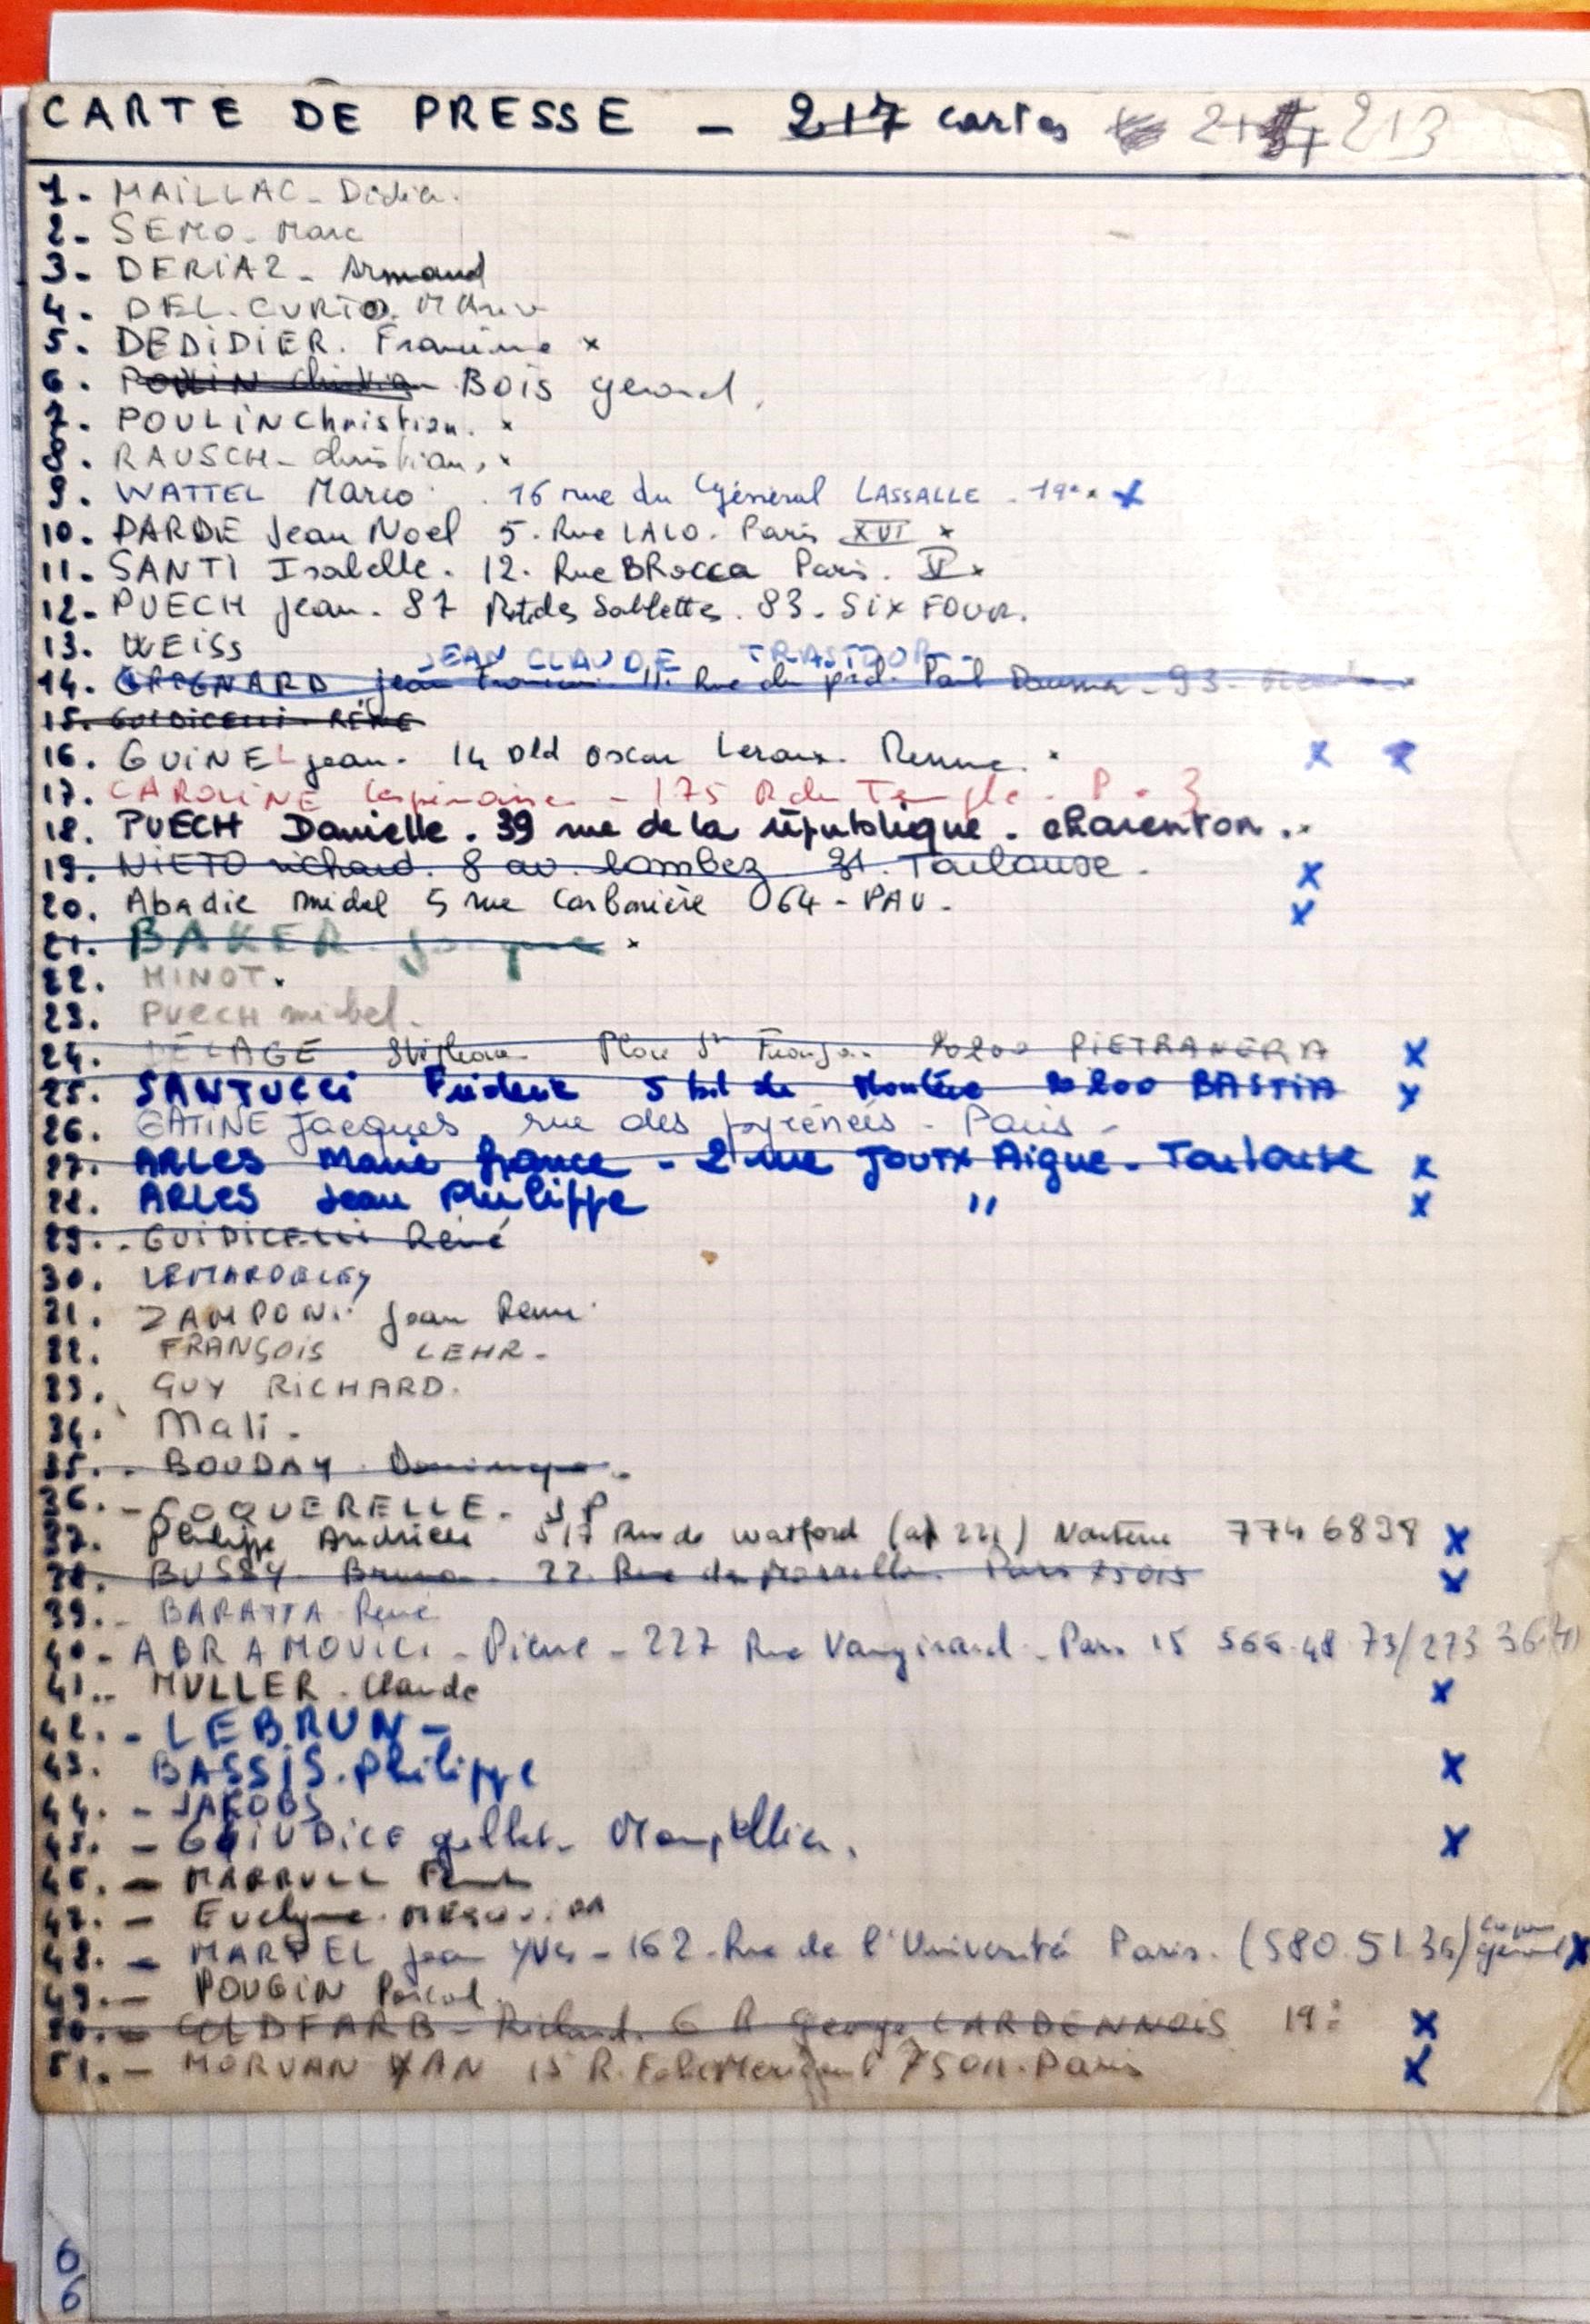 CARTE DE PRESSE - 217 cartes 213
1. MAILLAC - Didier.
2- SEMO - Marc
3- DERIAZ - Armand
4. DEL.CURTO.
5. DEDIDIER. Francine x
6. BOIS gerard.
7. POULIN Christian. x
8. RAUSCH - christian, x
9. WATTEL Marco . 16 rue du Général LASSALLE - 19e x
10. DARDE Jean Noel 5. Rue LALO. Paris XVI x
11. SANTI Isabelle. 12. Rue BRocca Paris. V x
12- PUECH jean. 87 Rt des Sablettes. 83. SIX FOUR.
13. WEISS
JEAN CLAUDE
14. GRIGNARD jean 11. Rue du psd. Paul Doumer - 93.
15. GUIDICELLI - RENE
16. GUINEL jean. 14 Bld oscar Leroux. Renne. x x
17. CAROLINE Lespinasse - 175 R du Temple - P. 3
18. PUECH Danielle. 39 rue de la république. charenton.
19. NIETO richard. 8 av. lombez 31. Toulouse. x
20. Abadie michel 5 rue Carbonière 064 - PAU. x
21. BAKER x
22. MINOT.
23. PUECH michel.
24. DELAGE Stéphane Place St 20200 PIETRANERA x
25. SANTUCCI Frideric 5 bd de 20200 BASTIA x
26. GATINE Jacques rue des pyrénées - Paris -
27. ARLES Marie france - 2 rue JOUTX Aigue. Toulouse x
28. ARLES Jean Philippe " x
29. GUIDICELLI René
30. LEMARDELEY
31. ZAMPONI Jean Remi
32. FRANÇOIS LEHR -
33. GUY RICHARD.
34. Mali -
35. BOUDAY Dominique
36. - COQUERELLE. J P
37. Philippe Andrieu 5/7 Rue de watford (ap 221) Nanterre 774 6839 x
38. BUSSY Bruno. 22. Rue de Paris 75015 x
39. - BARATTA René
40 - ABRAMOVICI - Pierre - 227 Rue Vaugirard - Paris 15 566.48.73/273 36
41. - MULLER. Claude x
42. - LEBRUN -
43. BASSIS. Philippe x
44. - JAKOBS
45. - GIUDICE Montpellier. x
46. -
47. - Evelyne
48. - MARTEL jean YVes - 162 - Rue de l'Université Paris. (580.51.36) x
49. - POUGIN Pascal.
50. - GOLDFARB - Richard. 6 R george LARDENNOIS 19e x
51. - MORVAN YAN 15 R. 75011. Paris x
6
6